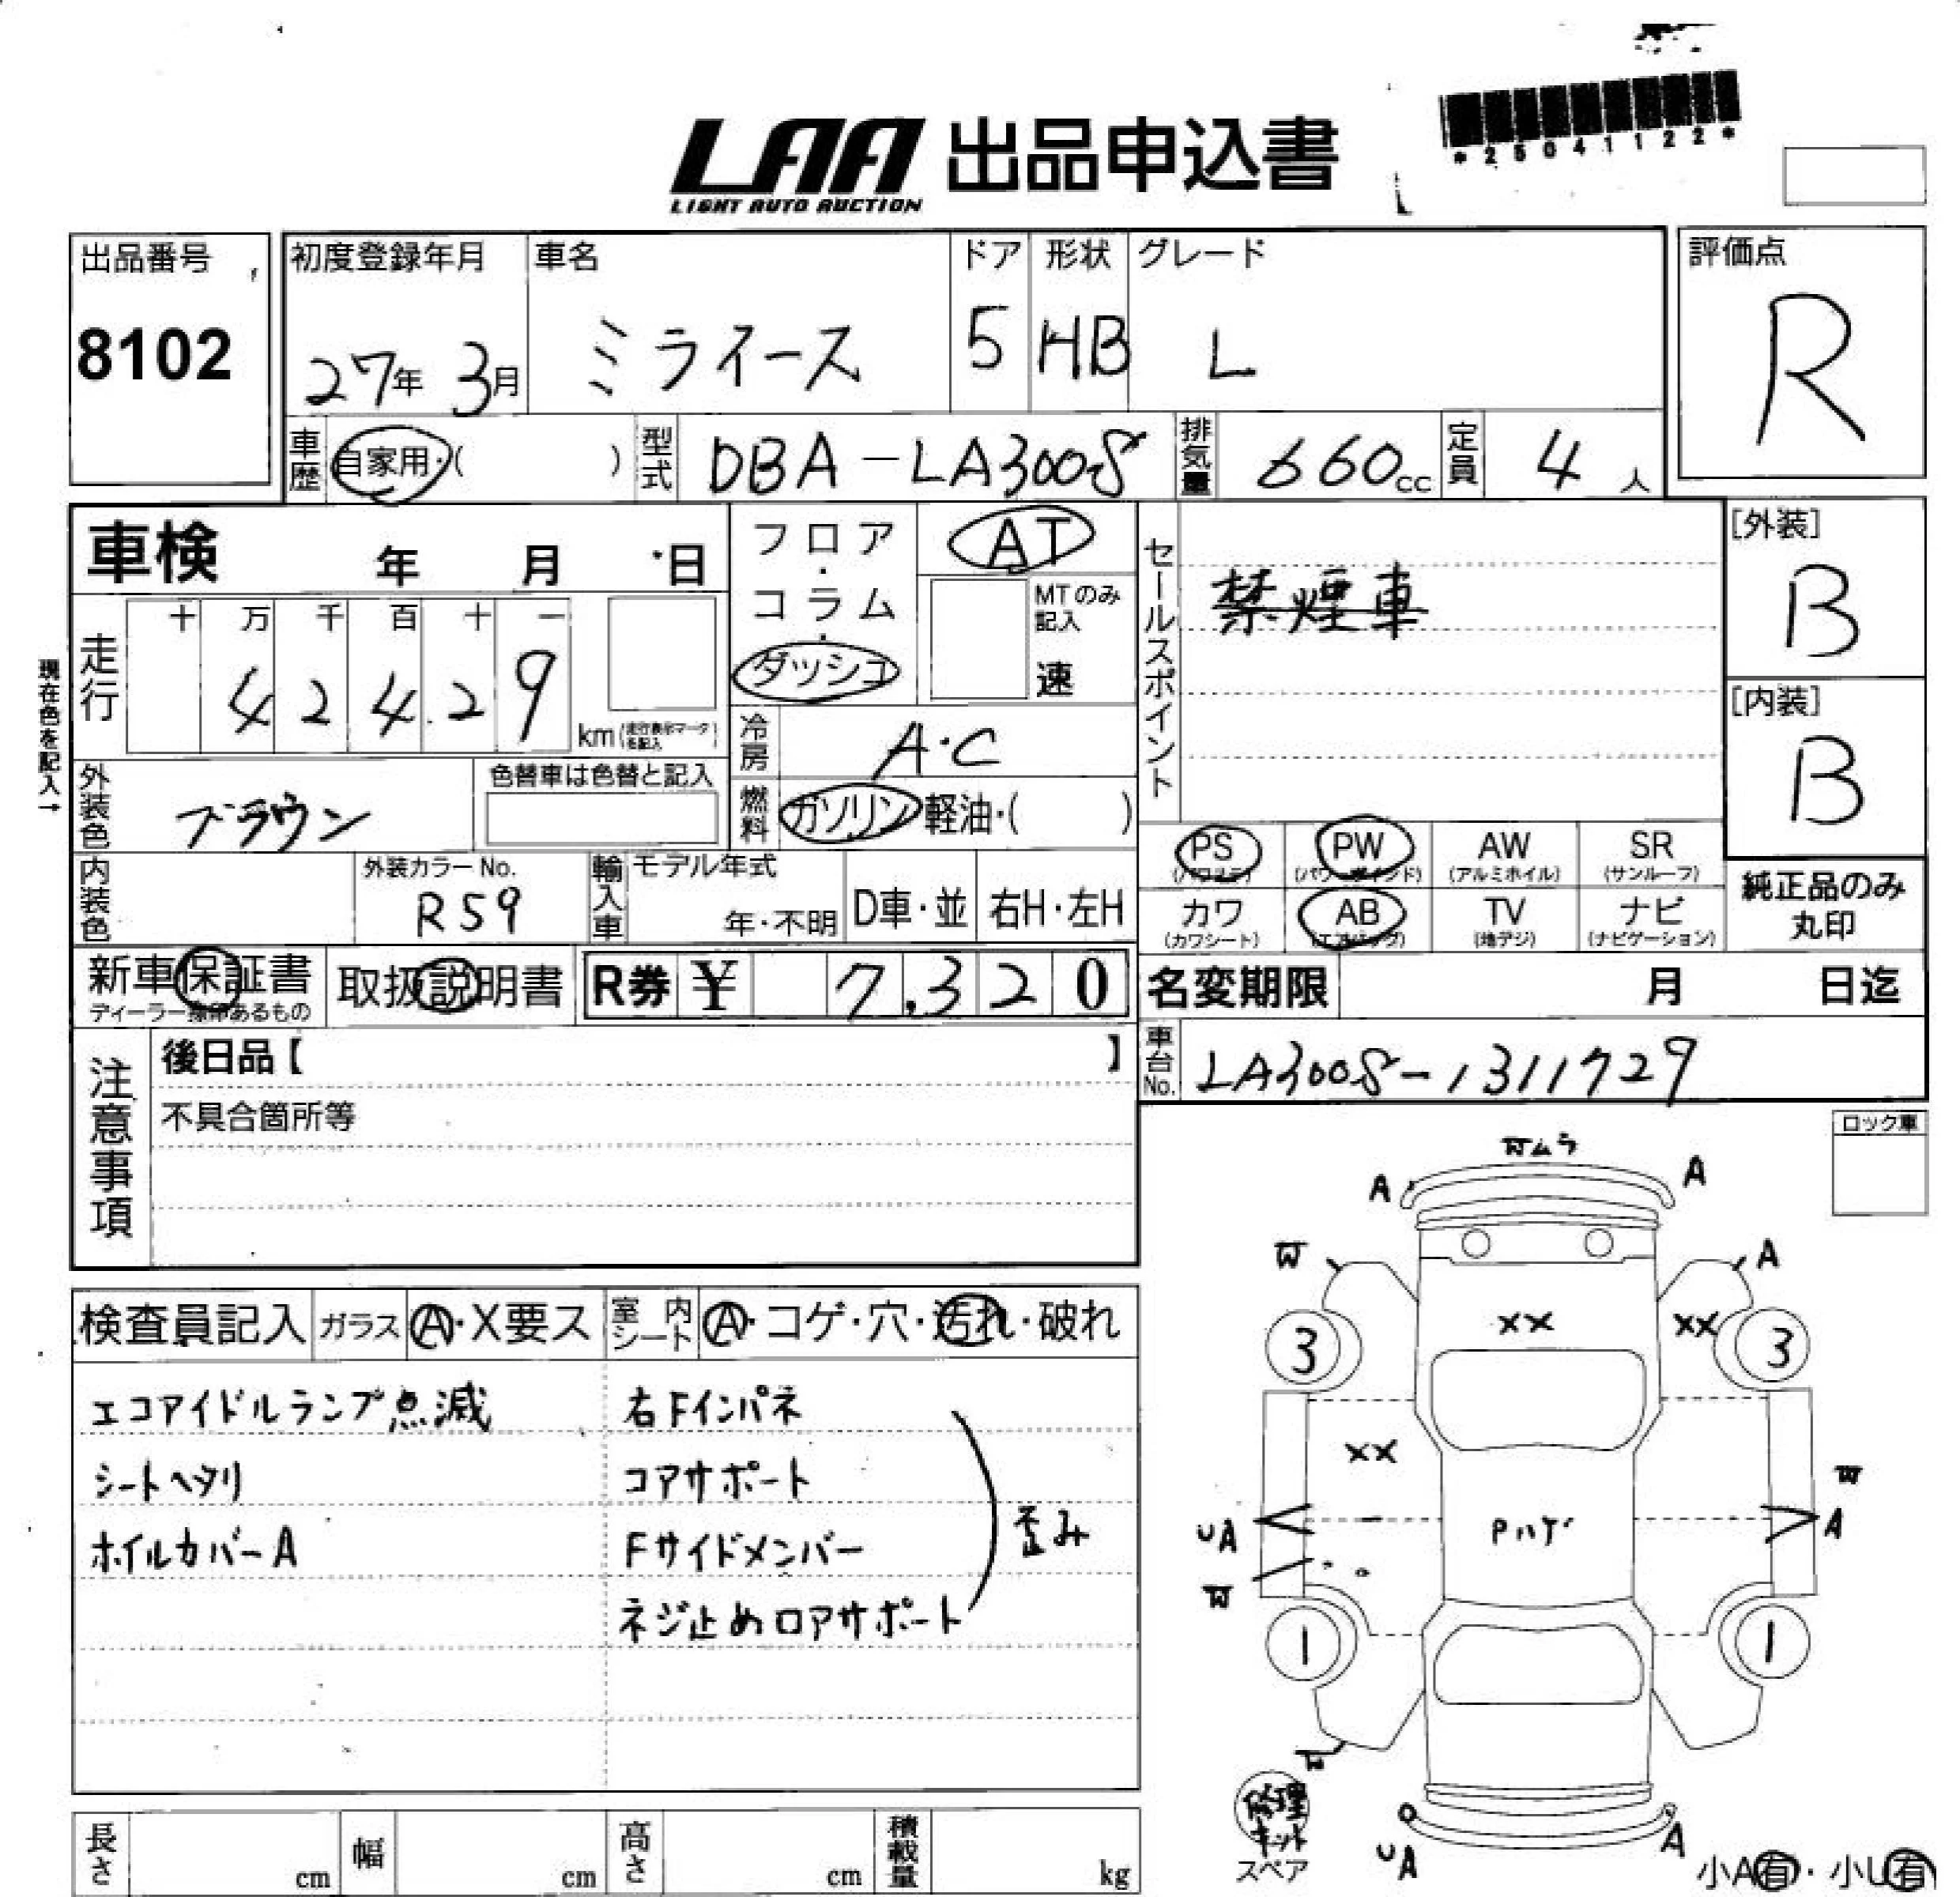 *25041122*
LAA 出品申込書
LIGHT AUTO AUCTION
出品番号
8102
初度登録年月
27年 3月
車名
ミライース
ドア
5
形状
HB
グレード
L
評価点
R
車歴 自家用・( )
型式 DBA-LA300S
排気量 660cc
定員 4人
車検 年 月 日
フロア・コラム・ダッシュ
AT
MTのみ記入
速
セールスポイント
禁煙車
[外装]
B
[内装]
B
現在色を記入→
走行
十 万 千 百 十 一
4 2 4 2 9
km(走行表示マークを記入)
冷房 A・C
外装色 ブラウン
色替車は色替と記入
燃料 ガソリン・軽油・( )
内装色
外装カラーNo.
R59
輸入車
モデル年式
年・不明
D車・並
右H・左H
PS (パワステ)
PW (パワーウインド)
AW (アルミホイル)
SR (サンルーフ)
カワ (カワシート)
AB (エアバッグ)
TV (地デジ)
ナビ (ナビゲーション)
純正品のみ丸印
新車保証書
ディーラー捺印あるもの
取扱説明書
R券 ¥ 7,320
名変期限 月 日迄
車台No. LA300S-1311729
注意事項
後日品【 】
不具合箇所等
ロック車
検査員記入
ガラス A・X要ス
室内シート A・コゲ・穴・汚れ・破れ
エコアイドルランプ点滅
シートヘタリ
ホイルカバーA
右Fインパネ
コアサポート
Fサイドメンバー
ネジ止めロアサポート
歪み
Wムラ
A A
W A
XX XX
3 3
XX
W
UA Pハゲ A
W
1 1
W
修理キット
スペア
UA A
小A有・小U有
長さ cm
幅 cm
高さ cm
積載量 kg